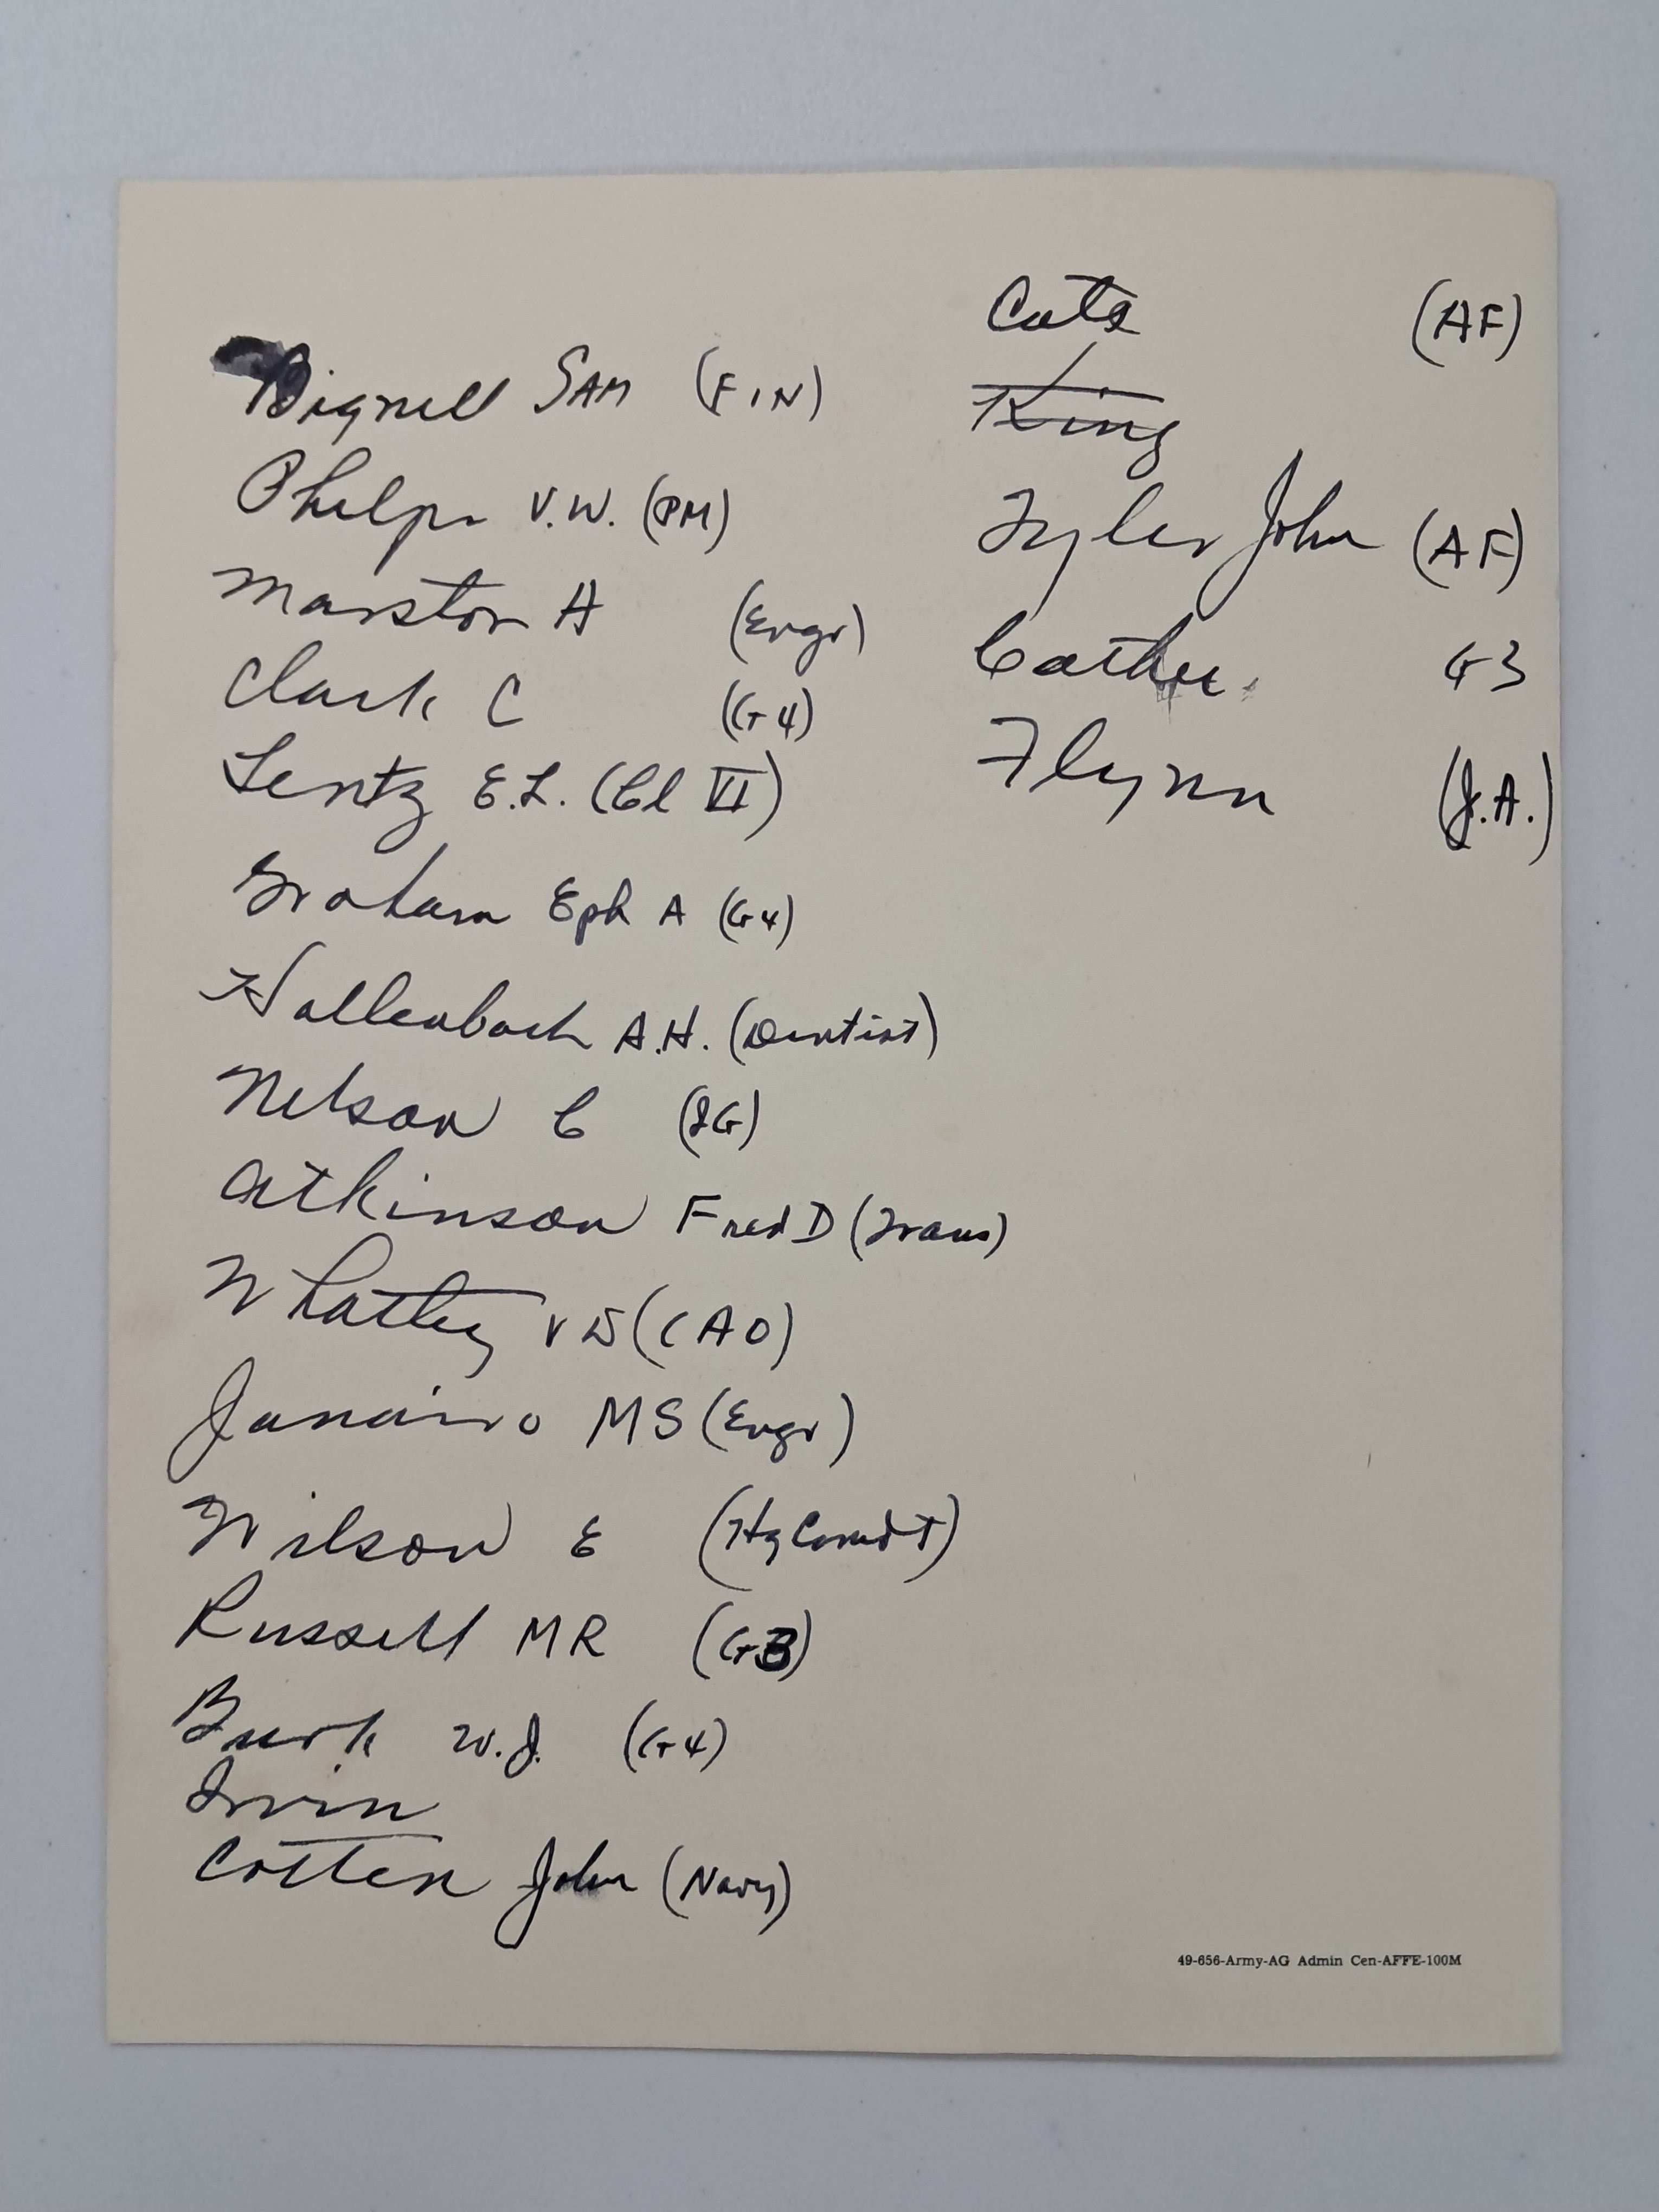 Bignell SAM (FIN)
Phelps V.W. (PM)
Marston A (Engr)
Clark C (G4)
Lentz E.L. (Cl VI)
Graham Eph A (G4)
Hallenbach A.H. (Dentist)
Nelson C (IG)
Atkinson Fred D (Trans)
Whatley V W (CAO)
Janairo MS (Engr)
Wilson E (Hq Comdt)
Russell MR (G3)
Burk W.J. (G4)
Irvin
Cotten John (Navy)
(AF)
King
Tyler John (AF)
G3
Flynn (J.A.)
49-656-Army-AG Admin Cen-AFFE-100M